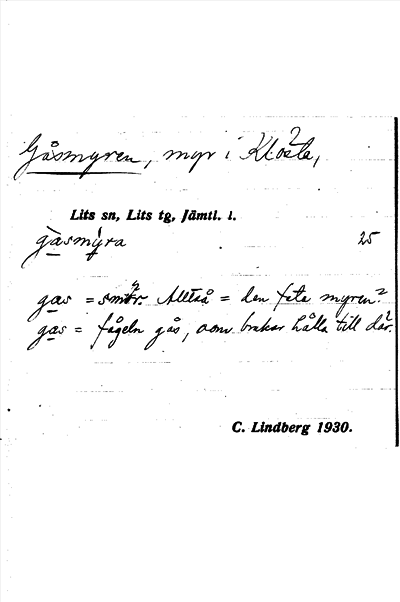 Gåsmyren, myr i Kloxåsen,
Lits sn, Lits tg, Jämtl. l.
gasmyra 25
gas = smör. Alltså = den feta myren?
gas = fågeln gås, som brukar hålla till där?
C. Lindberg 1930.